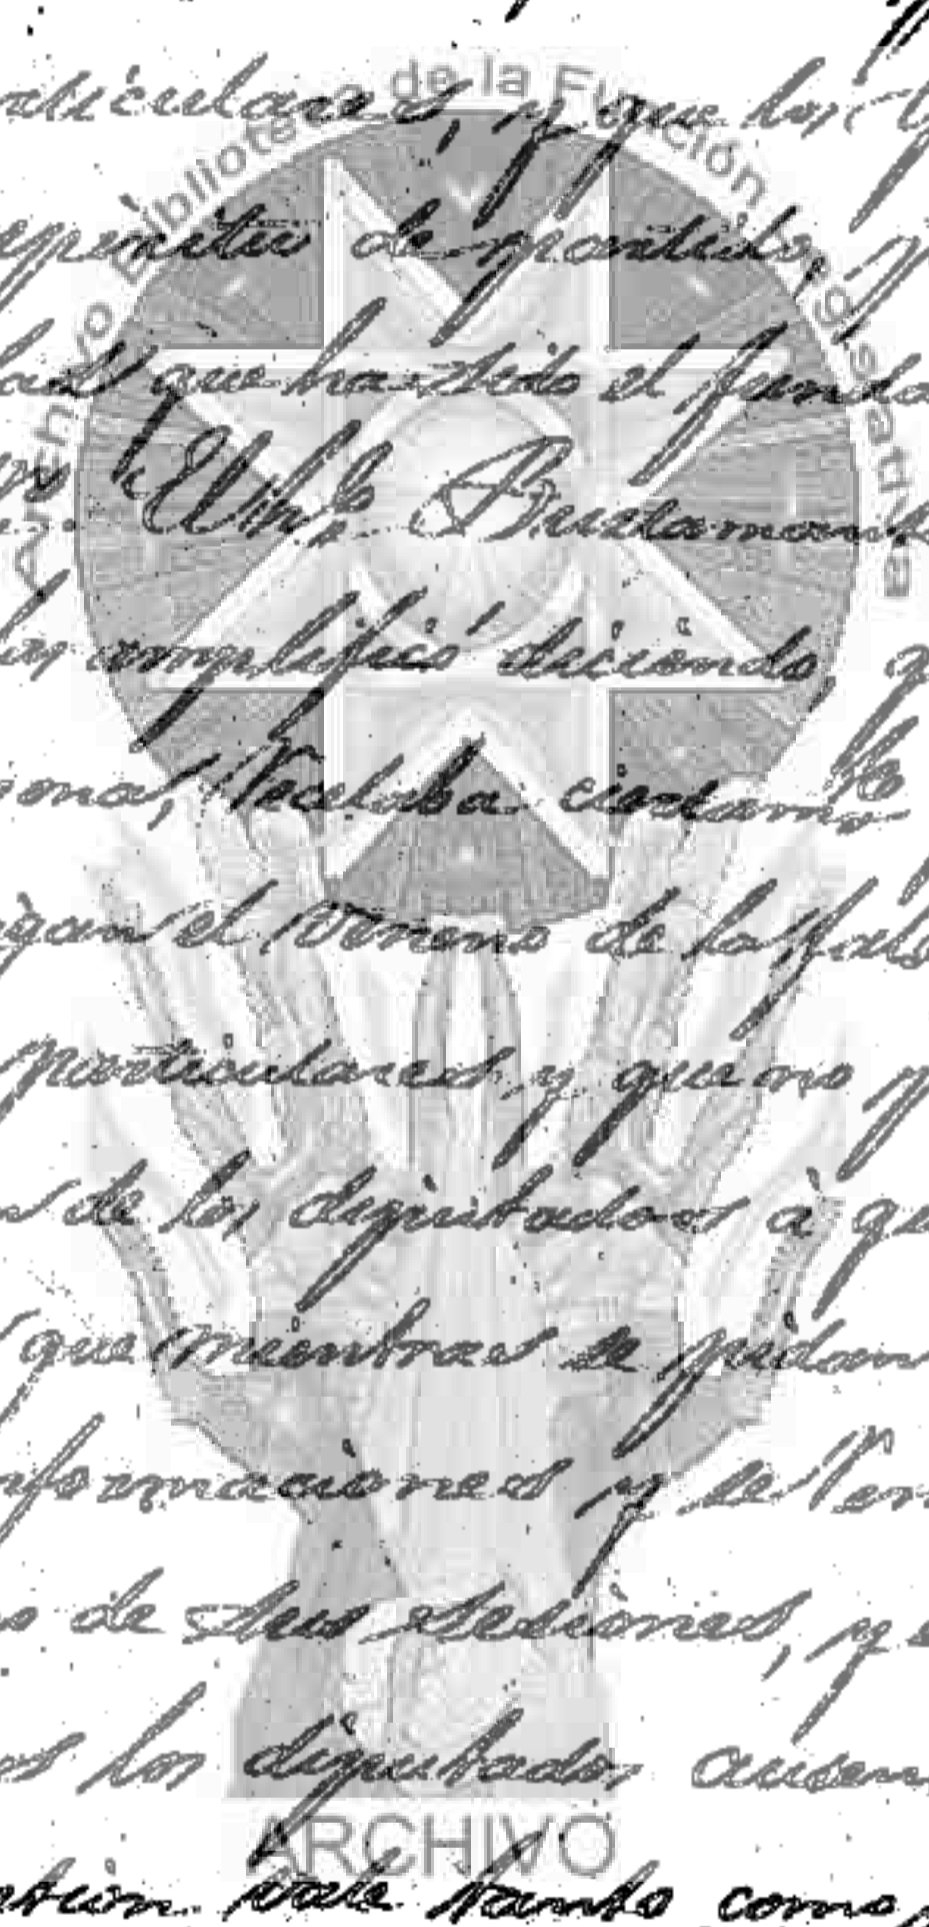 Archivo Biblioteca de la Función Legislativa
rticulares, y que los
espíritu de partido, y
que ha sido el funda
El H. Bustamant
las amplificó diciendo, q
sona, trataba ciertamte
igan el terreno de la fals
particulares y que no p
s de los diputados à qu
que mientras se pidan
nformaciones y se ten
o de sus sesiones, y e
os los diputados ausen
ARCHIVO
stion vale tanto como